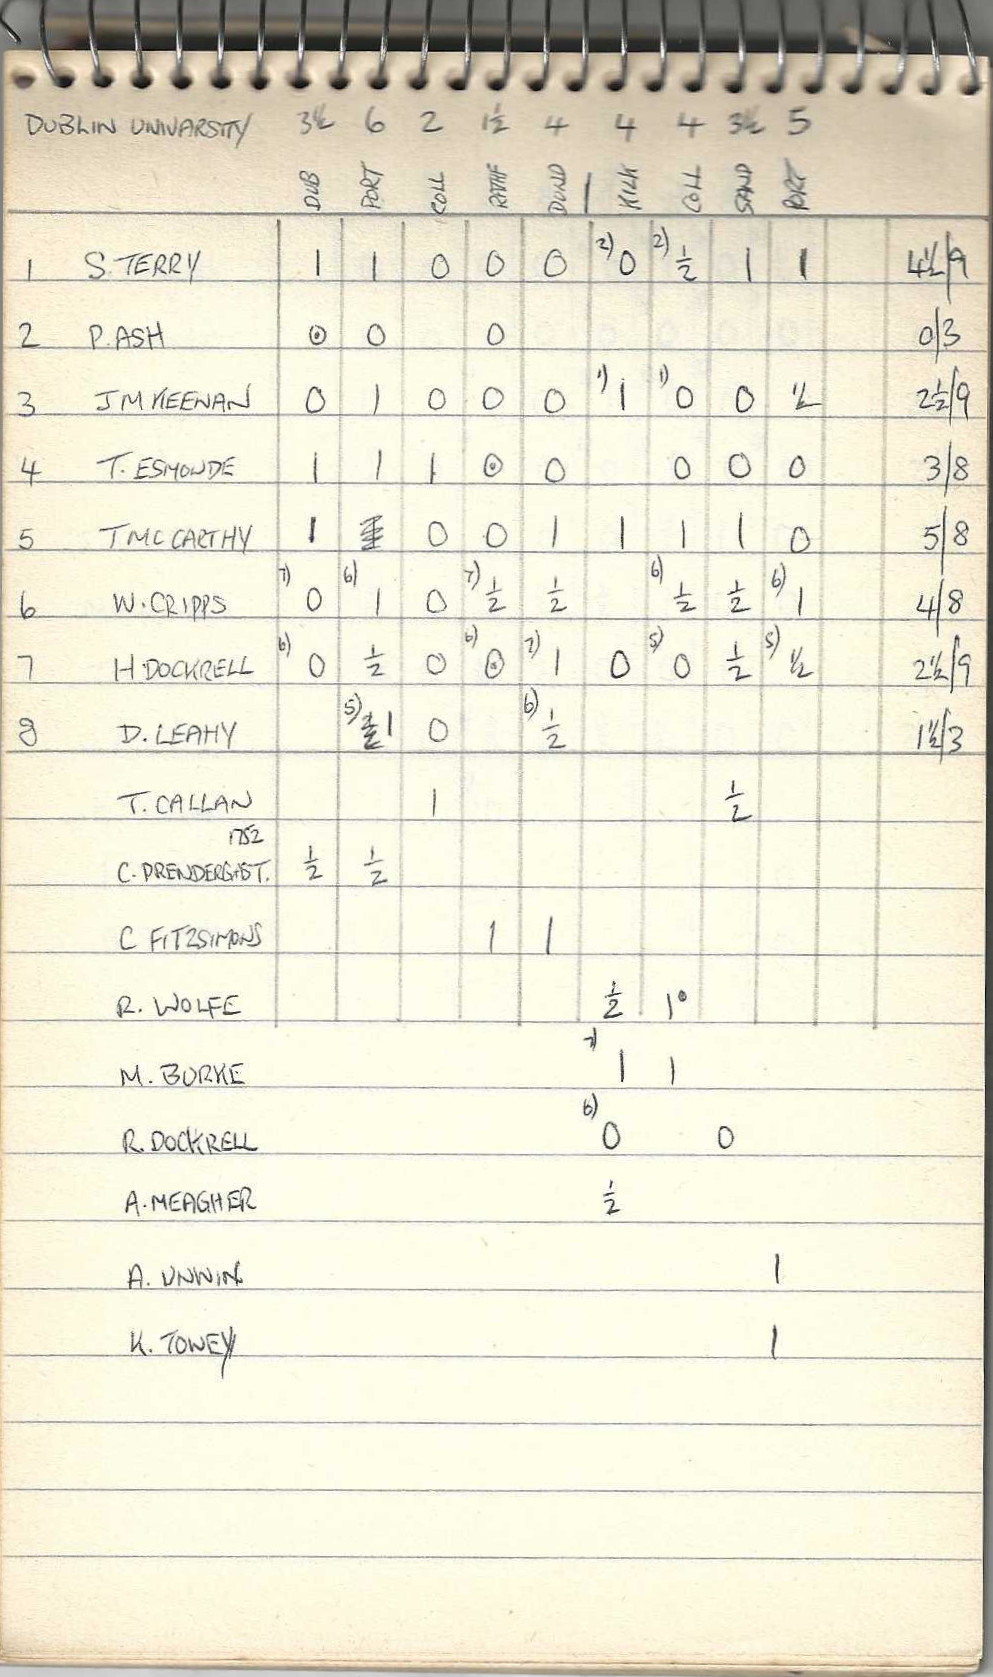 DUBLIN UNIVARSITY 3½ 6 2 1½ 4 4 4 3½ 5
DUB PORT COLL RATHF DUND KILK COLL SAND PORT
1 S. TERRY 1 1 0 0 0 2) 0 2) ½ 1 1 4½/9
2 P. ASH 0 0 0 0/3
3 J MKEENAN 0 1 0 0 0 1) 1 1) 0 0 ½ 2½/9
4 T. ESMONDE 1 1 1 0 0 0 0 0 3/8
5 T MCCARTHY 1 0 0 1 1 1 1 0 5/8
6 W. CRIPPS 7) 0 6) 1 0 7) ½ ½ 6) ½ ½ 6) 1 4/8
7 H DOCKRELL 6) 0 ½ 0 6) 0 7) 1 0 5) 0 ½ 5) ½ 2½/9
8 D. LEAHY 5) 1 0 6) ½ 1½/3
T. CALLAN 1 ½
1752
C. PRENDERGAST. ½ ½
C FITZSIMONS 1 1
R. WOLFE ½ 1°
M. BURKE 7) 1 1
R. DOCKRELL 6) 0 0
A. MEAGHER ½
A. UNWIN 1
K. TOWEY 1